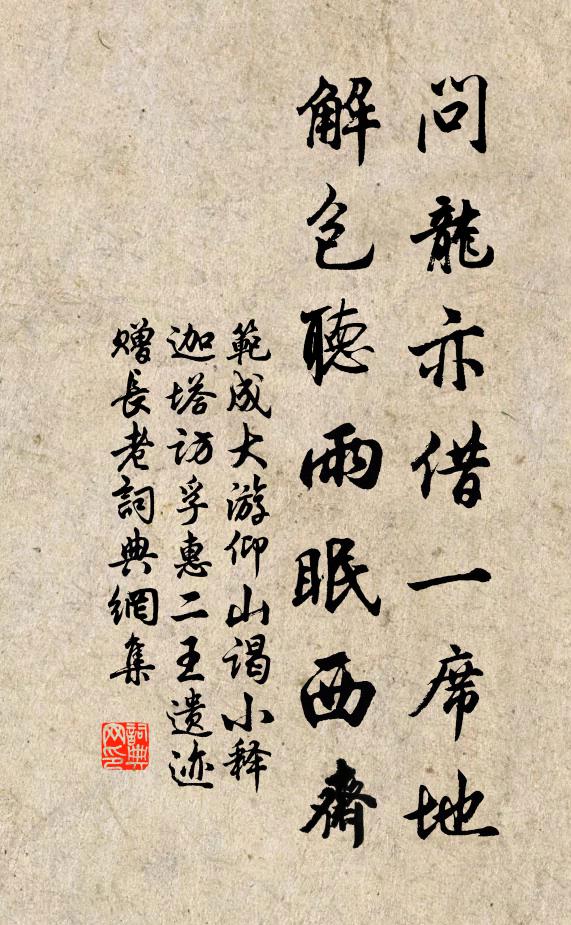 問龍亦借一席地
解包聽雨眠西齋
範成大游仰山謁小释
迦塔访孚惠二王遗迹
赠長老詞典網集
詞典
网印